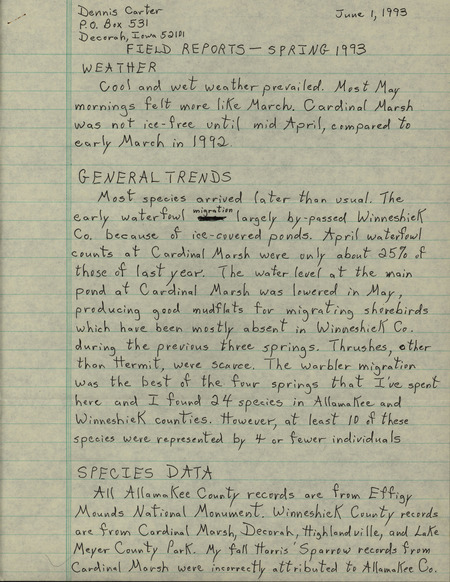 Dennis Carter
June 1, 1993
P.O. Box 531
Decorah, Iowa 52101
FIELD REPORTS — SPRING 1993
WEATHER
Cool and wet weather prevailed. Most May
mornings felt more like March. Cardinal Marsh
was not ice-free until mid April, compared to
early March in 1992.
GENERAL TRENDS
Most species arrived later than usual. The
early waterfowl migration largely by-passed Winneshiek
Co. because of ice-covered ponds. April waterfowl
counts at Cardinal Marsh were only about 25% of
those of last year. The water level at the main
pond at Cardinal Marsh was lowered in May,
producing good mudflats for migrating shorebirds
which have been mostly absent in Winneshiek Co.
during the previous three springs. Thrushes, other
than Hermit, were scarce. The warbler migration
was the best of the four springs that I've spent
here and I found 24 species in Allamakee and
Winneshiek counties. However, at least 10 of these
species were represented by 4 or fewer individuals
SPECIES DATA
All Allamakee County records are from Effigy
Mounds National Monument. Winneshiek County records
are from Cardinal Marsh, Decorah, Highlandville, and Lake
Meyer County Park. My fall Harris' Sparrow records from
Cardinal Marsh were incorrectly attributed to Allamakee Co.